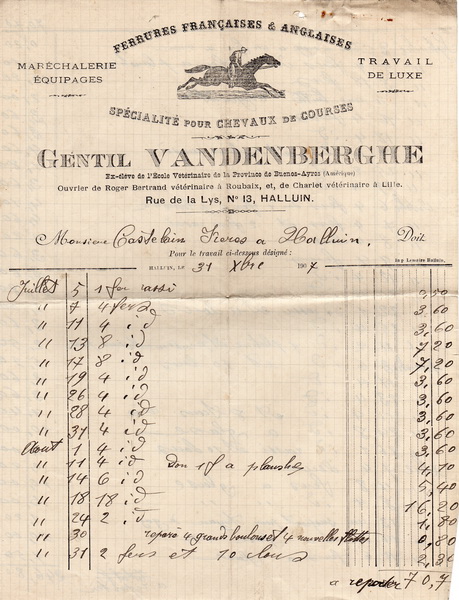 FERRURES FRANÇAISES & ANGLAISES
MARÉCHALERIE
ÉQUIPAGES
TRAVAIL
DE LUXE
SPÉCIALITÉ POUR CHEVAUX DE COURSES
GENTIL VANDENBERGHE
Ex-élève de l'École Vétérinaire de la Province de Buenos-Ayres (Amérique)
Ouvrier de Roger Bertrand vétérinaire à Roubaix, et, de Charlet vétérinaire à Lille.
Rue de la Lys, N° 13, HALLUIN.
Monsieur Castelain Freres a Halluin, Doit
Pour le travail ci-dessous désigné :
HALLUIN, LE 31 Xbre 1907
Imp Lemaire Halluin
Juillet 5 1 fer rassi
" 7 4 fers 3,60
" 11 4 id 3,60
" 13 8 id 7,20
" 17 8 id 7,20
" 19 4 id 3,60
" 26 4 id 3,60
" 28 4 id 3,60
" 31 4 id 3,60
Aout 1 4 id 3,60
" 11 4 id Don 1 f a planches 4,10
" 14 6 id 5,40
" 18 18 id 16,20
" 24 2 id 1,80
" 30 reparé 4 grands et 4 nouvelles 0,80
" 31 2 fers et 10 clous 2,30
a reporter 70,7